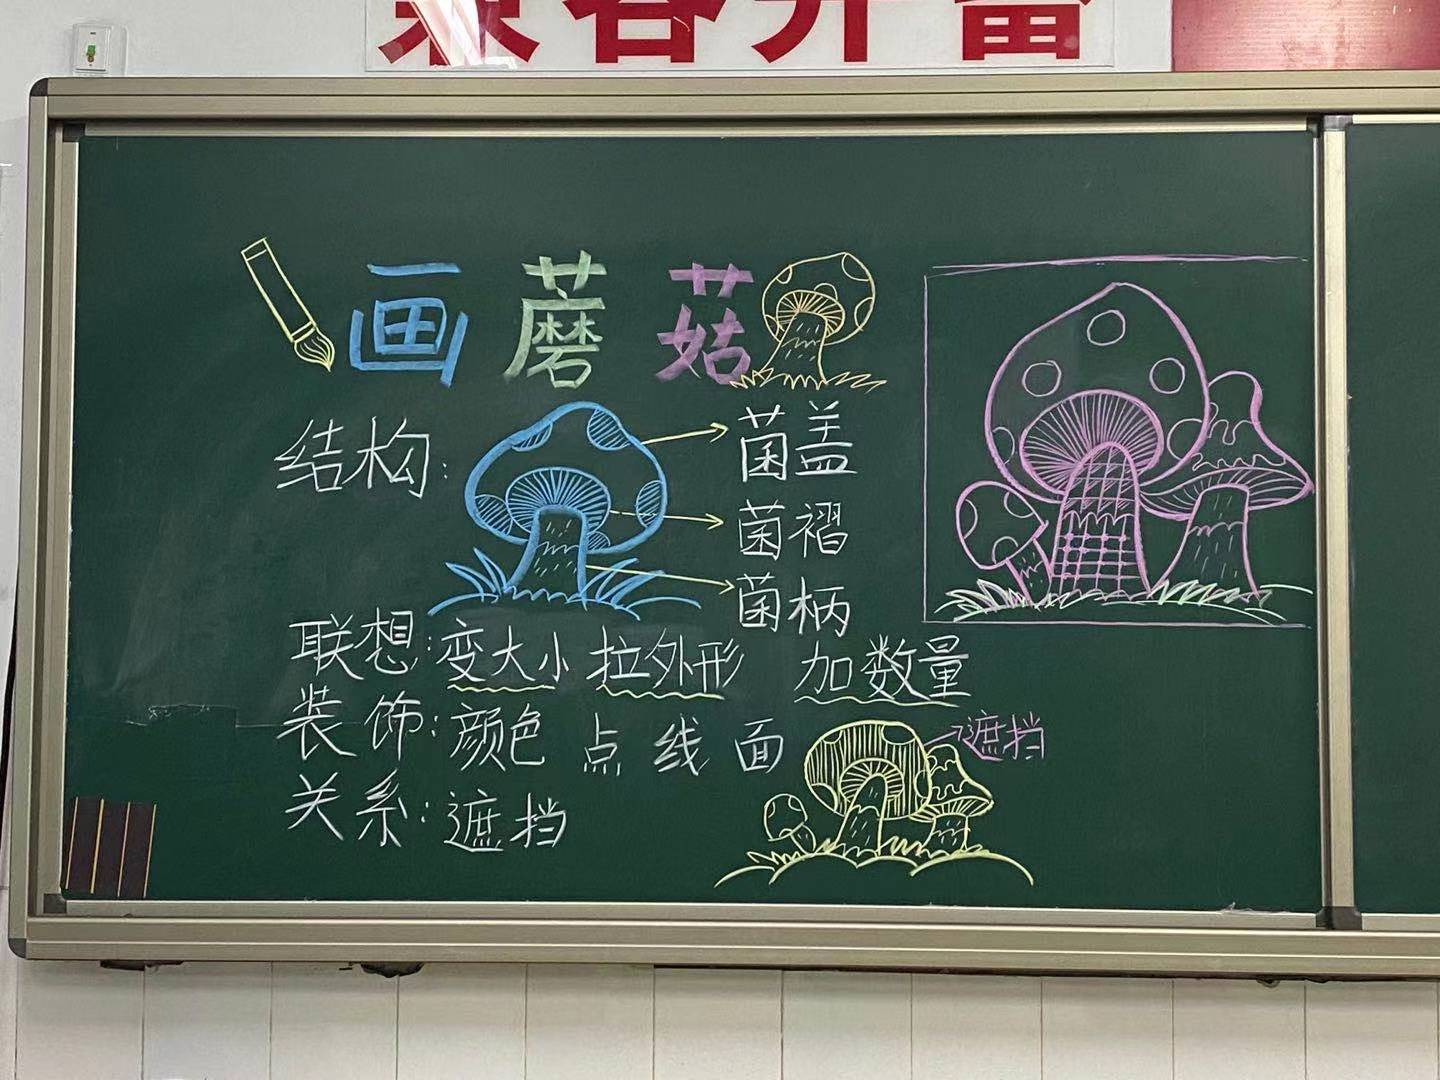 兼容并蓄
画蘑菇
结构:
菌盖
菌褶
菌柄
联想:变大小 拉外形 加数量
装饰:颜色 点 线 面
遮挡
关系:遮挡